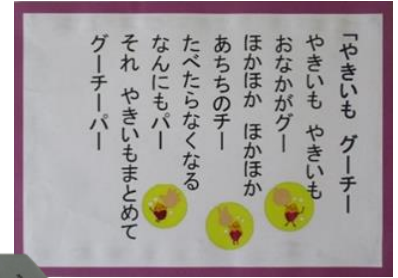 「やきいも グーチー
やきいも やきいも
おなかがグー
ほかほか ほかほか
あちちのチー
たべたらなくなる
なんにもパー
それ やきいもまとめて
グーチーパー